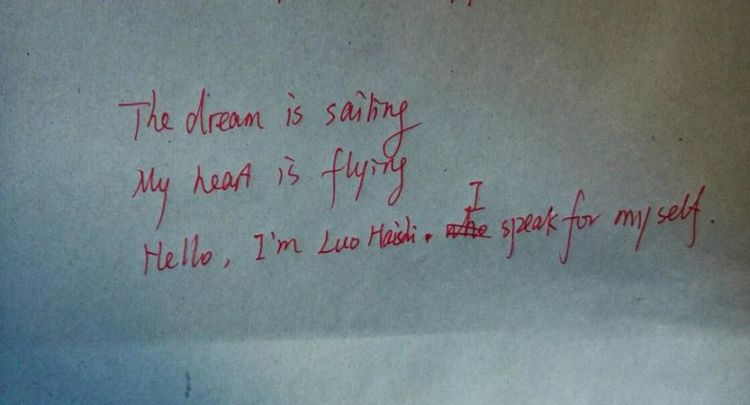 The dream is sailing
My heart is flying
Hello, I'm Luo Haishi. I speak for my self.